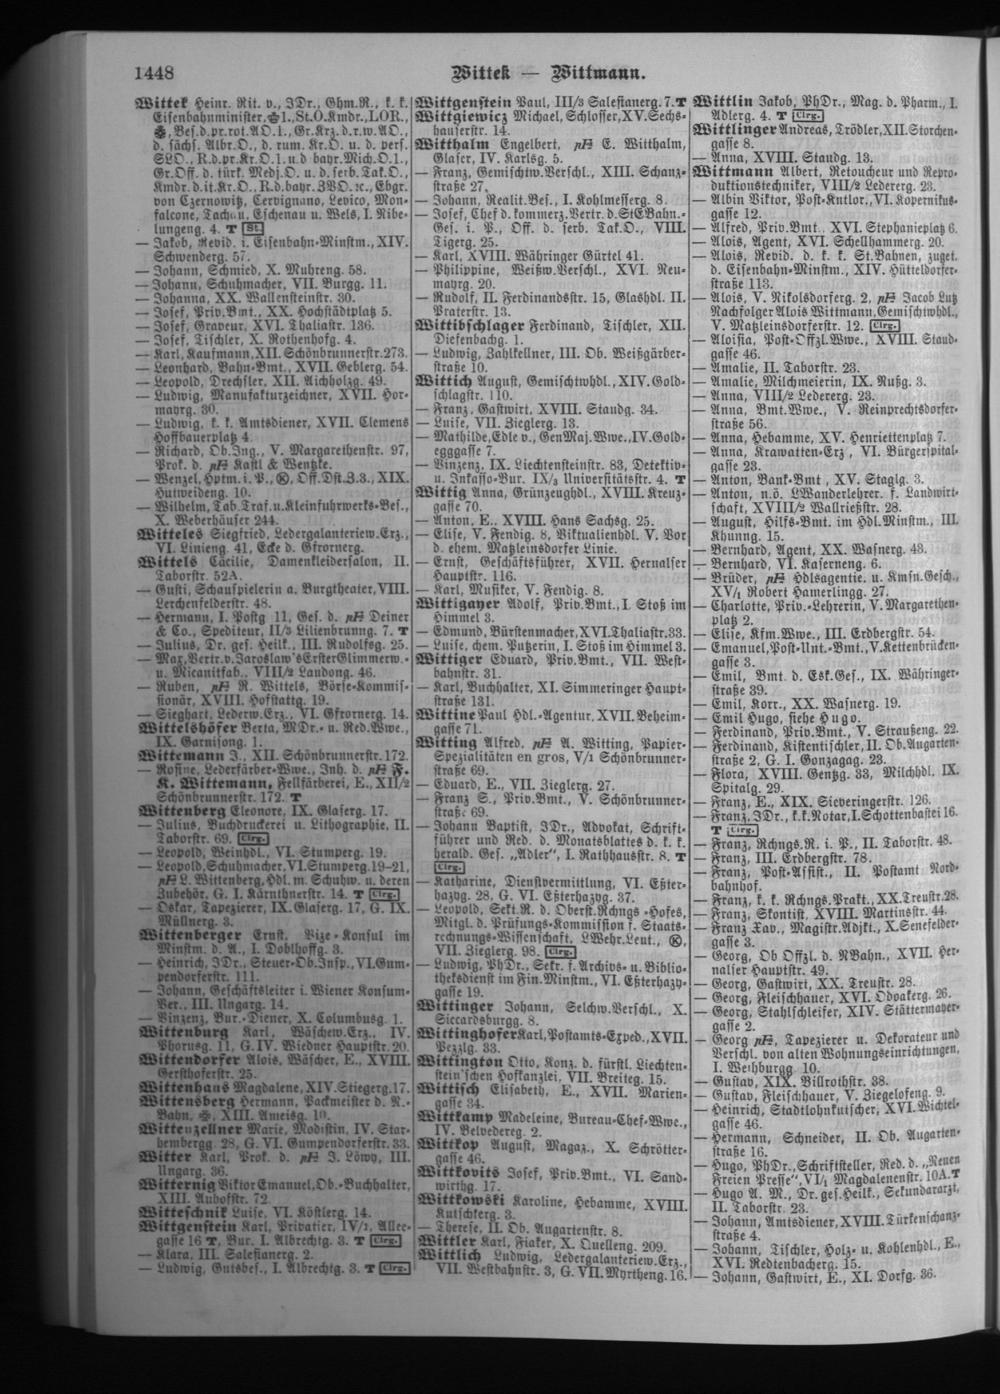 1448
Wittek — Wittmann.
Wittek Heinr. Rit. v., JDr., Ghm.R., k. k.
Eisenbahnminister, 1., St.O.Kmdr., LOR.,
Bes.d.pr.rot.AO.1., Gr.Krz.d.r.w.AO.,
d. sächs. Albr.O., d. rum. Kr.O. u. d. pers.
SLO., R.d.pr.Kr.O.1.u.d bayr.Mich.O.1.,
Gr.Off. d. türk. Medj.O. u. d. serb. Tak.O.,
Kmdr.d.it.Kr.O., R.d.bayr.ZVO.ꝛc., Ehgr.
von Czernowitz, Cervignano, Levico, Mon-
falcone, Tachau, Eschenau u. Wels, I. Nibe-
lungeng. 4. T St.
— Jakob, Revid. i. Eisenbahn-Minstm., XIV.
Schwenderg. 57.
— Johann, Schmied, X. Muhreng. 58.
— Johann, Schuhmacher, VII. Burgg. 11.
— Johanna, XX. Wallensteinstr. 30.
— Josef, Priv.Bmt., XX. Hochstädtplatz 5.
— Josef, Graveur, XVI. Thaliastr. 136.
— Josef, Tischler, X. Rothenhofg. 4.
— Karl, Kaufmann, XII. Schönbrunnerstr. 273.
— Leonhard, Bahn-Bmt., XVII. Geblerg. 54.
— Leopold, Drechsler, XII. Aichholzg. 49.
— Ludwig, Manufakturzeichner, XVII. Hor-
mayrg. 30.
— Ludwig, k. k. Amtsdiener, XVII. Clemens
Hoffbauerplatz 4.
— Richard, Ob.Ing., V. Margarethenstr. 97,
Prok. d. pH Kastl & Wentzke.
— Wenzel, Hptm. i. P., Off.Dst.Z.3., XIX.
Hutweideng. 10.
— Wilhelm, Tab.Traf.u.Kleinfuhrwerks-Bes.,
X. Weberhäuser 244.
Witteles Siegfried, Ledergalanteriew.Erz.,
VI. Linieng. 41, Ecke d. Gfrornerg.
Wittels Cäcilie, Damenkleidersalon, II.
Taborstr. 52A.
— Gusti, Schauspielerin a. Burgtheater, VIII.
Lerchenfelderstr. 48.
— Hermann, I. Postg 11, Ges. d. pH Deiner
& Co., Spediteur, II/3 Lilienbrunng. 7. T
— Julius, Dr. ges. Heilk., III. Rudolfsg. 25.
— Max, Vertr.v.Jaroslaw'sErsterGlimmerw.-
u. Micanitfab., VIII/2 Laudong. 46.
— Ruben, pH R. Wittels, Börse-Kommis-
sionär, XVIII. Hofstattg. 19.
— Sieghart, Lederw.Erz., VI. Gfrornerg. 14.
Wittelshöfer Berta, MDr.- u. Red.Wwe.,
IX. Garnisong. 1.
Wittemann J., XII. Schönbrunnerstr. 172.
— Rosine, Lederfärber-Wwe., Inh. d. pH F.
K. Wittemann, Fellfärberei, E., XII/2
Schönbrunnerstr. 172. T
Wittenberg Eleonore, IX. Glaserg. 17.
— Julius, Buchdruckerei u. Lithographie, II.
Taborstr. 69. Clrg.
— Leopold, Weinhdl., VI. Stumperg. 19.
— Leopold, Schuhmacher, VI.Stumperg. 19-21,
pH L. Wittenberg, Hdl. m. Schuhw. u. deren
Zubehör, G. I. Kärnthnerstr. 14. T Clrg.
— Oskar, Tapezierer, IX. Glaserg. 17, G. IX.
Müllnerg. 3.
Wittenberger Ernst, Vize-Konsul im
Minstm. d. A., I. Doblhoffg. 3.
— Heinrich, JDr., Steuer-Ob.Insp., VI.Gum-
pendorferstr. 111.
— Johann, Geschäftsleiter i. Wiener Konsum-
Ver., III. Ungarg. 14.
— Vinzenz, Bur.-Diener, X. Columbusg. 1.
Wittenburg Karl, Wäschew.Erz., IV.
Phorusg. 11, G.IV. Wiedner Hauptstr. 20.
Wittendorfer Alois, Wäscher, E., XVIII.
Gersthoferstr. 25.
Wittenhaus Magdalene, XIV.Stiegerg. 17.
Wittensberg Hermann, Packmeister d. N.-
Bahn, XIII. Ameisg. 10.
Wittenzellner Marie, Modistin, IV. Star-
hembergg. 28, G. VI. Gumpendorferstr. 33.
Witter Karl, Prok. d. pH J. Löwy, III.
Ungarg. 36.
Witternig Viktor Emanuel, Ob.-Buchhalter,
XIII. Auhofstr. 72
Witteschnik Luise, VI. Köstlerg. 14.
Wittgenstein Karl, Privatier, IV/1, Allee-
gasse 16 T, Bur. I. Albrechtg. 3. T Clrg.
— Klara, III. Salesianerg. 2.
— Ludwig, Gutsbes., I. Albrechtg. 3. T Clrg.
Wittgenstein Paul, III/3 Salesianerg. 7. T
Wittgiewicz Michael, Schlosser, XV. Sechs-
hauserstr. 14.
Witthalm Engelbert, pH E. Witthalm,
Glaser, IV. Karlsg. 5.
— Franz, Gemischtw.Verschl., XIII. Schanz-
straße 27.
— Johann, Realit.Bes., I. Kohlmesserg. 8.
— Josef, Chef d. kommerz.Vertr. d. StEBahn.-
Ges. i. P., Off. d. serb. Tak.O., VIII.
Tigerg. 25.
— Karl, XVIII. Währinger Gürtel 41.
— Philippine, Weißw.Verschl., XVI. Neu-
mayrg. 20.
— Rudolf, II. Ferdinandsstr. 15, Glashdl. II.
Praterstr. 13.
Wittibschlager Ferdinand, Tischler, XII.
Diefenbachg. 1.
— Ludwig, Zahlkellner, III. Ob. Weißgärber-
straße 10.
Wittich August, Gemischtwhdl., XIV. Gold-
schlagstr. 110.
— Franz, Gastwirt, XVIII. Staudg. 34.
— Luise, VII. Zieglerg. 13.
— Mathilde, Edle v., GenMaj.Wwe., IV. Gold-
egggasse 7.
— Vinzenz, IX. Liechtensteinstr. 83, Detektiv-
u. Inkasso-Bur. IX/3 Universitätsstr. 4. T
Wittig Anna, Grünzeughdl., XVIII. Kreuz-
gasse 70.
— Anton, E., XVIII. Hans Sachsg. 25.
— Elise, V. Fendig. 8, Viktualienhdl. V. Vor
d. ehem. Matzleinsdorfer Linie.
— Ernst, Geschäftsführer, XVII. Hernalser
Hauptstr. 116.
— Karl, Musiker, V. Fendig. 8.
Wittigayer Adolf, Priv.Bmt., I. Stoß im
Himmel 3.
— Edmund, Bürstenmacher, XVI.Thaliastr. 33.
— Luise, chem. Putzerin, I. Stoß im Himmel 3.
Wittiger Eduard, Priv.Bmt., VII. West-
bahnstr. 31.
— Karl, Buchhalter, XI. Simmeringer Haupt-
straße 131.
Wittine Paul Hdl.-Agentur, XVII. Beheim-
gasse 71.
Witting Alfred, pH A. Witting, Papier-
Spezialitäten en gros, V/1 Schönbrunner-
straße 69.
— Eduard, E., VII. Zieglerg. 27.
— Franz S., Priv.Bmt., V. Schönbrunner-
straße 69.
— Johann Baptist, JDr., Advokat, Schrift-
führer und Red. d. Monatsblattes d. k. k.
herald. Ges. „Adler", I. Rathhausstr. 8. T
Clrg.
— Katharine, Dienstvermittlung, VI. Eßter-
hazyg. 28, G. VI. Eßterhazyg. 37.
— Leopold, Sekt.R. d. Oberst.Rchngs.-Hofes,
Mitgl. d. Prüfungs-Kommission f. Staats-
rechnungs-Wissenschaft, LWehr.Leut.,
VII. Zieglerg. 98. Clrg.
— Ludwig, PhDr., Sekr. f. Archivs- u. Biblio-
theksdienst im Fin.Minstm., VI. Eßterhazy-
gasse 19.
Wittinger Johann, Selchw.Verschl., X.
Siccardsburgg. 8.
Wittinghofer Karl, Postamts-Exped., XVII.
Pezzlg. 33.
Wittington Otto, Konz. d. fürstl. Liechten-
stein'schen Hofkanzlei, VII. Breiteg. 15.
Wittisch Elisabeth, E., XVII. Marien-
gasse 34.
Wittkamp Madeleine, Bureau-Chef-Wwe.,
IV. Belvedereg. 2.
Wittkop August, Magaz., X. Schrötter-
gasse 46.
Wittkovits Josef, Priv.Bmt., VI. Sand-
wirthg. 17.
Wittkowski Karoline, Hebamme, XVIII.
Kutschkerg. 3.
— Therese, II. Ob. Augartenstr. 8.
Wittler Karl, Fiaker, X. Quelleng. 209.
Wittlich Ludwig, Ledergalanteriew.Erz.,
VII. Westbahnstr. 3, G. VII. Myrtheng. 16.
Wittlin Jakob, PhDr., Mag. d. Pharm., I.
Adlerg. 4. T Clrg.
Wittlinger Andreas, Trödler, XII. Storchen-
gasse 8.
— Anna, XVIII. Staudg. 13.
Wittmann Albert, Retoucheur und Repro-
duktionstechniker, VIII/2 Ledererg. 23.
— Albin Viktor, Post-Kntlor., VI. Kopernikus-
gasse 12.
— Alfred, Priv.Bmt., XVI. Stephanieplatz 6.
— Alois, Agent, XVI. Schellhammerg. 20.
— Alois, Revid. d. k. k. St.Bahnen, zuget.
d. Eisenbahn-Minstm., XIV. Hütteldorfer-
straße 113.
— Alois, V. Nikolsdorferg. 2, pH Jacob Lutz
Nachfolger Alois Wittmann, Gemischtwhdl.,
V. Matzleinsdorferstr. 12. Clrg.
— Aloisia, Post-Offzl.Wwe., XVIII. Staud-
gasse 46.
— Amalie, II. Taborstr. 23.
— Amalie, Milchmeierin, IX. Nußg. 3.
— Anna, VIII/2 Ledererg. 23.
— Anna, Bmt.Wwe., V. Reinprechtsdorfer-
straße 56.
— Anna, Hebamme, XV. Henriettenplatz 7.
— Anna, Krawatten-Erz., VI. Bürgerspital-
gasse 23.
— Anton, Bank-Bmt., XV. Staglg. 3.
— Anton, n.ö. LWanderlehrer. f. Landwirt-
schaft, XVIII/2 Wallrießstr. 28.
— August, Hilfs-Bmt. im Hdl.Minstm., III.
Khunng. 15.
— Bernhard, Agent, XX. Wasnerg. 43.
— Bernhard, VI. Kaserneng. 6.
— Brüder, pH Hdlsagentie. u. Kmsn.Gesch.,
XV/1 Robert Hamerlingg. 27.
— Charlotte, Priv.-Lehrerin, V. Margarethen-
platz 2.
— Elise, Kfm.Wwe., III. Erdbergstr. 54.
— Emanuel, Post-Unt.-Bmt., V.Kettenbrücken-
gasse 3.
— Emil, Bmt. d. Esk.Ges., IX. Währinger-
straße 39.
— Emil, Korr., XX. Wasnerg. 19.
— Emil Hugo, siehe Hugo.
— Ferdinand, Priv.Bmt., V. Straußeng. 22.
— Ferdinand, Kistentischler, II. Ob.Augarten-
straße 2, G. I. Gonzagag. 23.
— Flora, XVIII. Gentzg. 33, Milchhdl. IX.
Spitalg. 29.
— Franz, E., XIX. Sieveringerstr. 126.
— Franz, JDr., k.k.Notar, I.Schottenbastei 16.
T Clrg.
— Franz, Rchngs.R. i. P., II. Taborstr. 48.
— Franz, III. Erdbergstr. 78.
— Franz, Post-Assist., II. Postamt Nord-
bahnhof.
— Franz, k. k. Rchngs.Prakt., XX.Treustr. 28.
— Franz, Skontist, XVIII. Martinsstr. 44.
— Franz Xav., Magistr.Adjkt., X.Senefelder-
gasse 3.
— Georg, Ob Offzl. d. NBahn., XVII. Her-
nalser Hauptstr. 49.
— Georg, Gastwirt, XX. Treustr. 28.
— Georg, Fleischhauer, XVI. Odoakerg. 26.
— Georg, Stahlschleifer, XIV. Stättermayer-
gasse 2.
— Georg pH, Tapezierer u. Dekorateur und
Verschl. von alten Wohnungseinrichtungen,
I. Weihburgg. 10.
— Gustav, XIX. Billrothstr. 38.
— Gustav, Fleischhauer, V. Ziegelofeng. 9.
— Heinrich, Stadtlohnkutscher, XVI.Wichtel-
gasse 46.
— Hermann, Schneider, II. Ob. Augarten-
straße 16.
— Hugo, PhDr., Schriftsteller, Red. d. „Neuen
Freien Presse", VI/1 Magdalenenstr. 10A. T
— Hugo A. M., Dr. ges.Heilk., Sekundararzt,
II. Taborstr. 23.
— Johann, Amtsdiener, XVIII. Türkenschanz-
straße 4.
— Johann, Tischler, Holz- u. Kohlenhdl., E.,
XVI. Redtenbacherg. 15.
— Johann, Gastwirt, E., XI. Dorfg. 36.